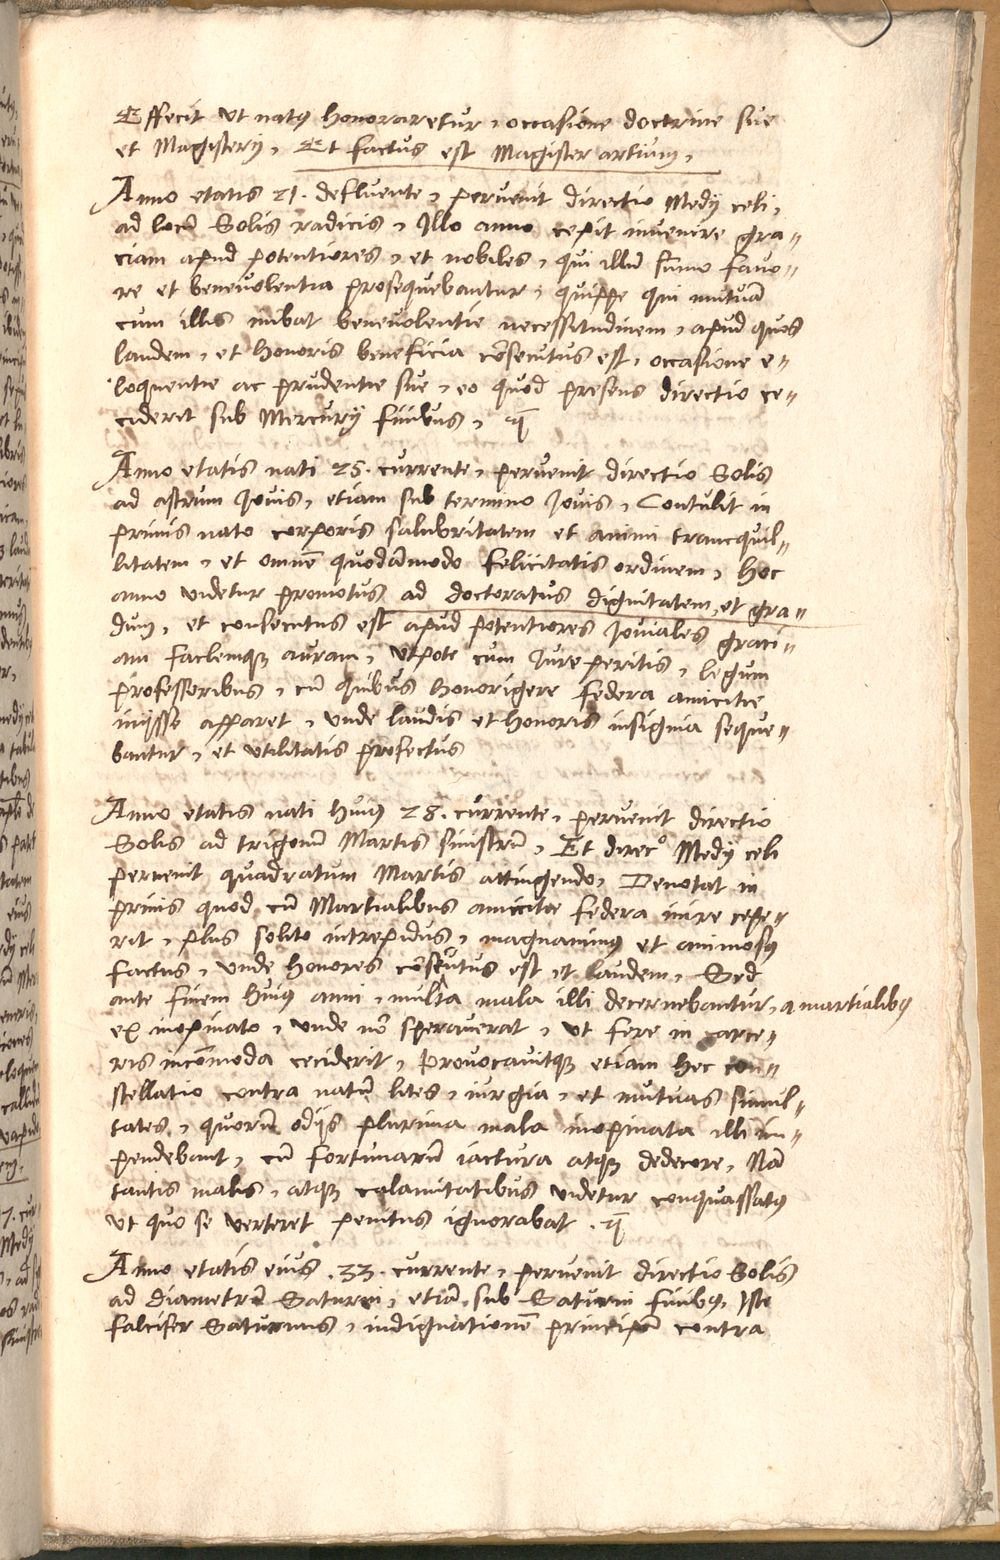 Effecit ut natus honoraretur, occasione doctrine sue
et Magisterij, Et factus est Magister artium,
Anno etatis 21. defluente, pervenit directio Medij celi,
ad locũ Solis radicis, Illo anno cepit invenire gra„
ciam apud potentiores, et nobiles, qui illũ sũmo favo„
re et benevolentia prosequebantur, quippe qui mutuã
cum illis inibat benevolentie necessitudinem, apud quos
laudem, et honoris beneficia cõsecutus est, occasione e„
loquentie ac prudentie sue, eo quod presens directio ce„
ciderit sub Mercurij finibus,
Anno etatis nati 25. currente, pervenit directio Solis
ad astrum Jovis, etiam sub termino Jovis, Contulit in
primis nato corporis salubritatem et animi trancquil„
litatem, et omnẽ quodãmodo felicitatis ordinem, Hoc
anno videtur promotus ad doctoratus dignitatem, et gra„
dum, et consecutus est apud potentiores Joviales graci„
am faclemqȝ auram, utpote cum Jure peritis, legum
professoribus, cũ quibus honorigere federa amicitie
inijsse apparet, unde laudis et honoris insignia seque„
bantur, et utilitatis profectus
Anno etatis nati huius 28. currente, pervenit directio
Solis ad trigonũ Martis sinistrũ, Et direcº Medij celi
pervenit quadratum Martis attingendo, Denotat in
primis quod cũ Martialibus amicitie federa inire cepe„
rit, plus solito intrepidus, magnanimus et animosus
factus, unde honores cõsecutus est, et laudem, Sed
ante finem huius anni, multa mala illi decernebantur, a martialibus
ex inopinato, unde nõ speraverat, ut fere in carce„
ris incõmoda ceciderit, Provocavitqȝ etiam hec con„
stellatio contra natũ lites, iurgia, et mutuas simul„
tates, quorũ odijs plurima mala inopinata illi im„
pendebant, cũ fortunarũ iactura atqȝ dedecore, Nã
tantis malis, atqȝ calamitatibus videtur conquassatus
ut quo se verteret penitus ignorabat.
Anno etatis eius .33. currente, pervenit directio Solis
ad diametrũ Saturni, etiã sub Saturni finibus, Iste
falcifer Saturnus, indignationẽ principũ contra